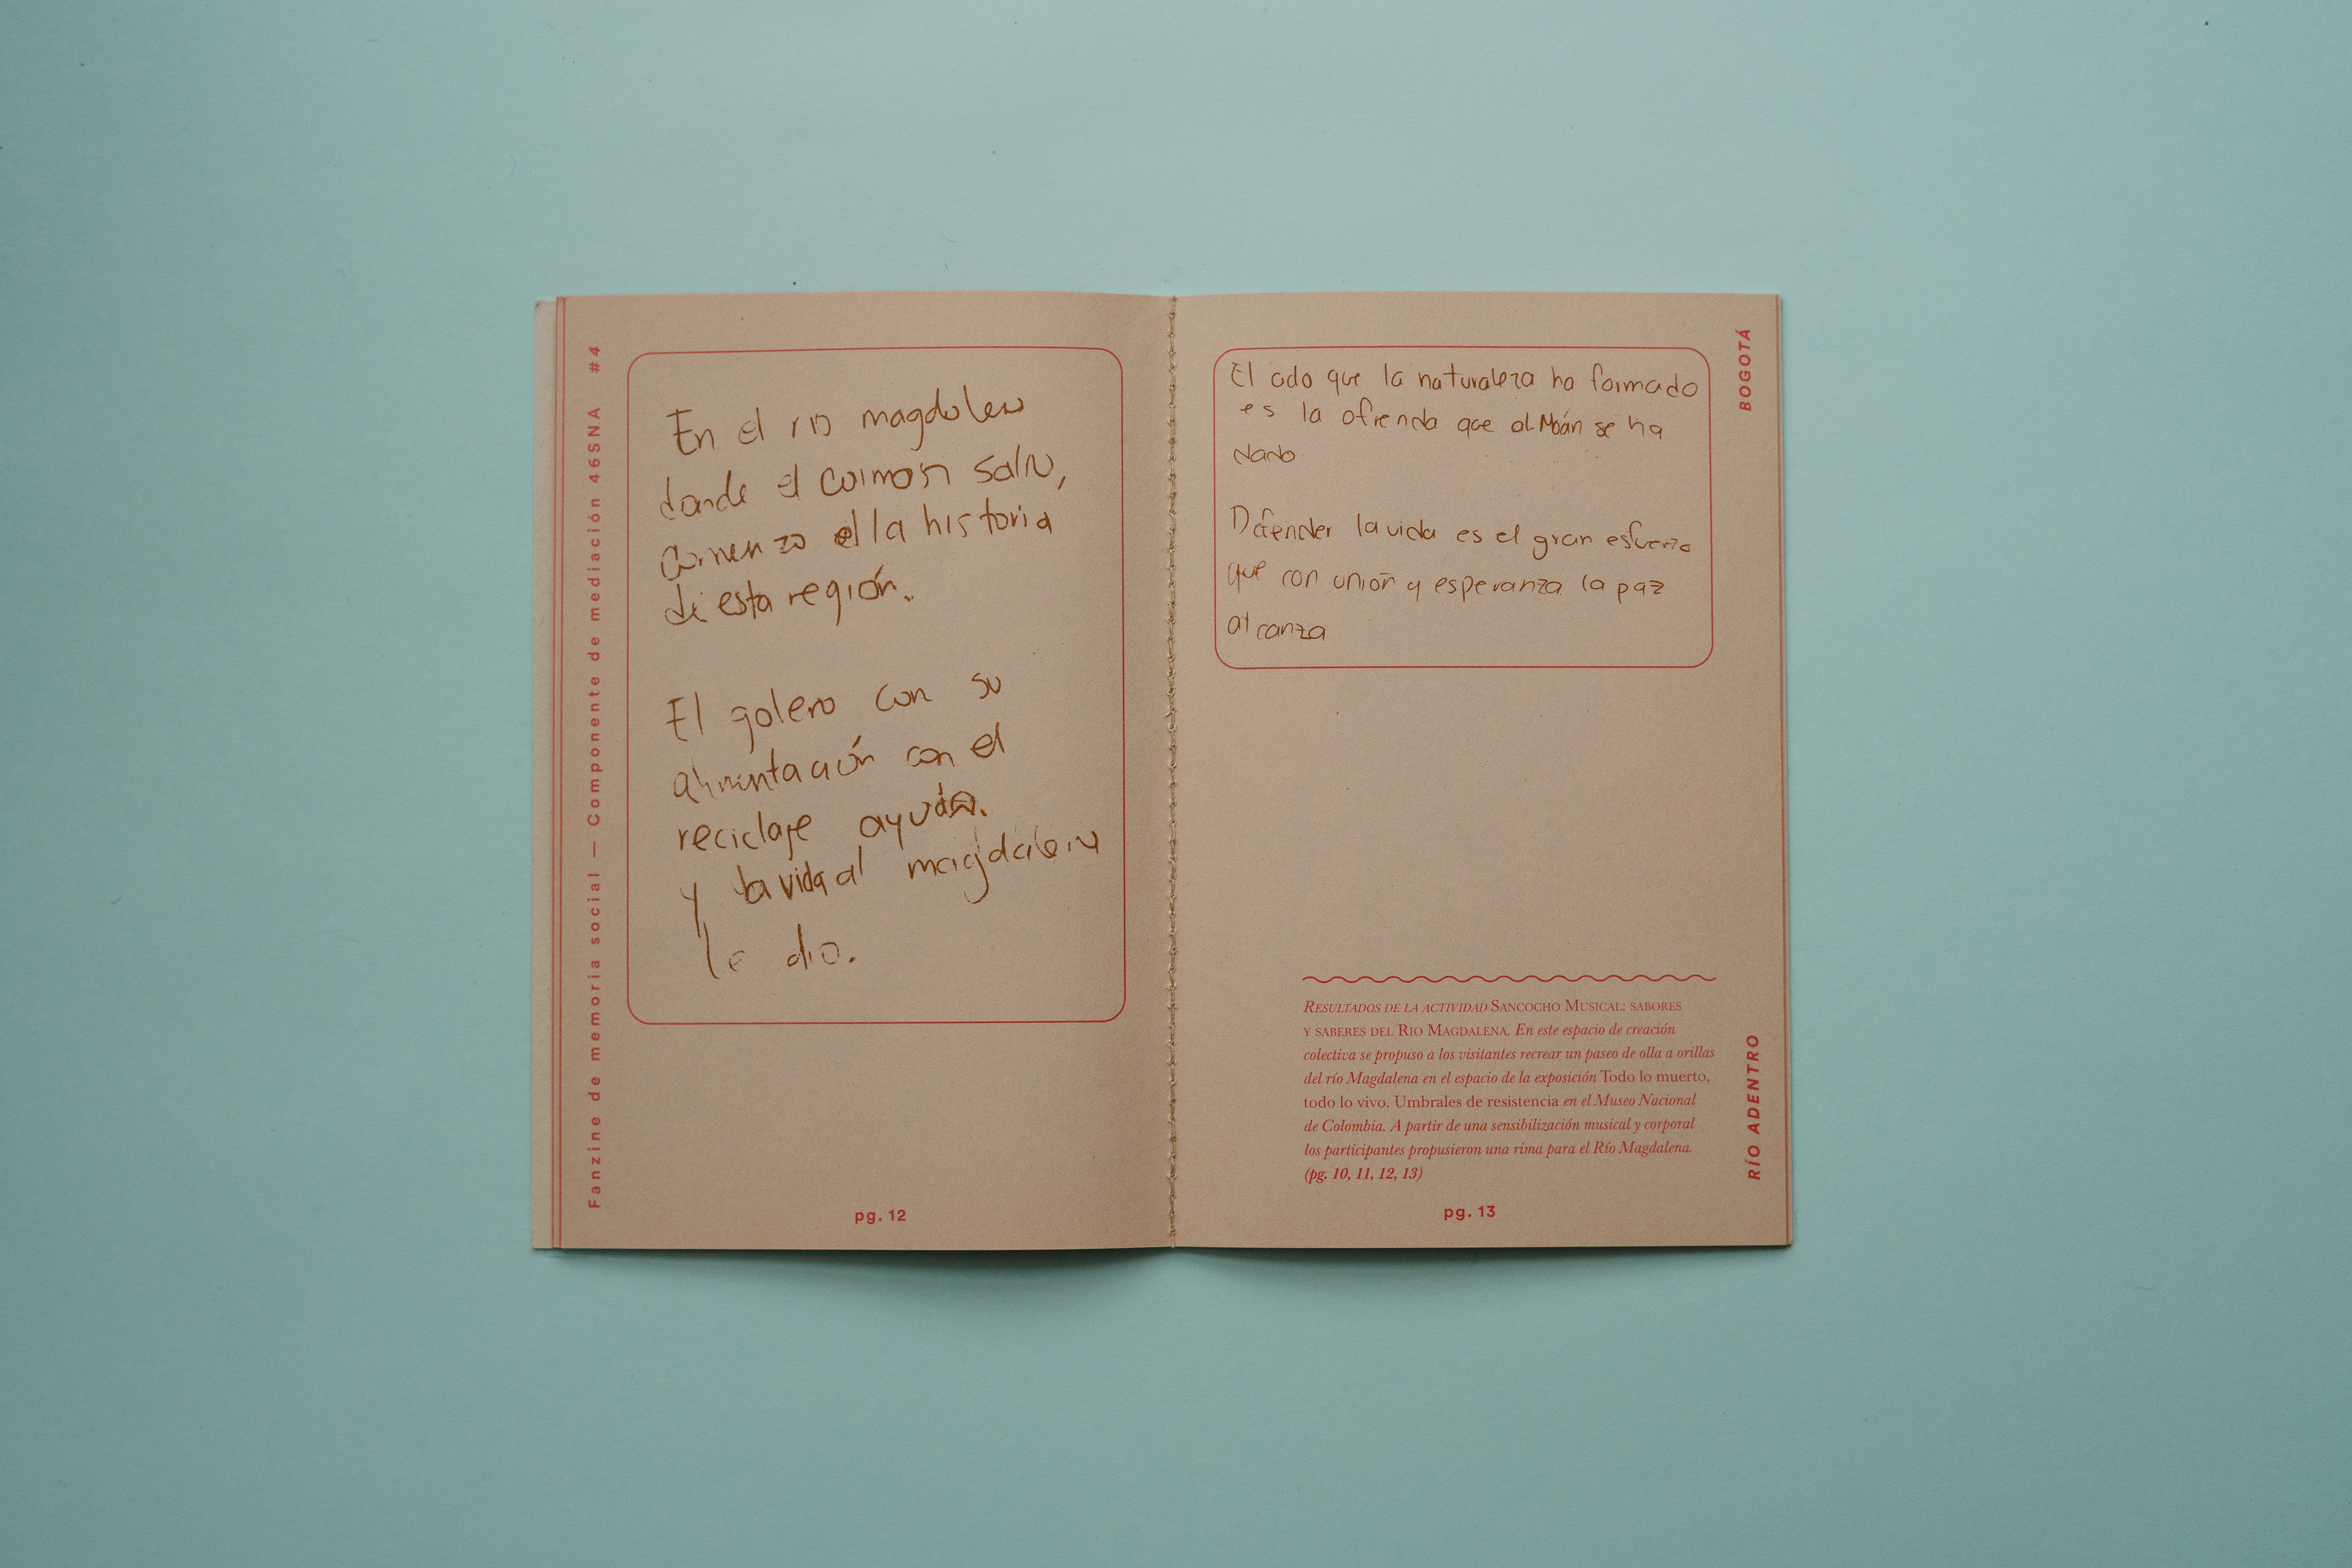 Fanzine de memoria social — Componente de mediación 46SNA #4
En el rio magdalena
donde el caiman salio,
comenzo la historia
de esta región.
El golero con su
alimentación con el
reciclaje ayudó.
y la vida al magdalena
le dio.
pg. 12
BOGOTÁ
El ado que la naturaleza ha formado
es la ofrenda que al Moán se ha
dado
Defender la vida es el gran esfuerzo
que con unión y esperanza la paz
alcanza
RESULTADOS DE LA ACTIVIDAD SANCOCHO MUSICAL: SABORES
Y SABERES DEL RIO MAGDALENA. En este espacio de creación
colectiva se propuso a los visitantes recrear un paseo de olla a orillas
del río Magdalena en el espacio de la exposición Todo lo muerto,
todo lo vivo. Umbrales de resistencia en el Museo Nacional
de Colombia. A partir de una sensibilización musical y corporal
los participantes propusieron una rima para el Río Magdalena.
(pg. 10, 11, 12, 13)
RÍO ADENTRO
pg. 13